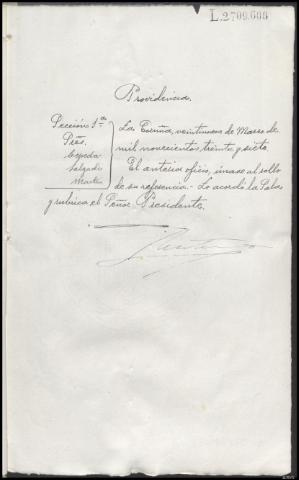 L.2709.600
Providencia.
Sección 1ª
Sres.
Cepeda
Salgado
Martin
La Coruña, veintinueve de Marzo de
mil novecientos treinta y siete.
El anterior oficio, únase al rollo
de su referencia.- Lo acordó la Sala
y rubrica el Señor Presidente.